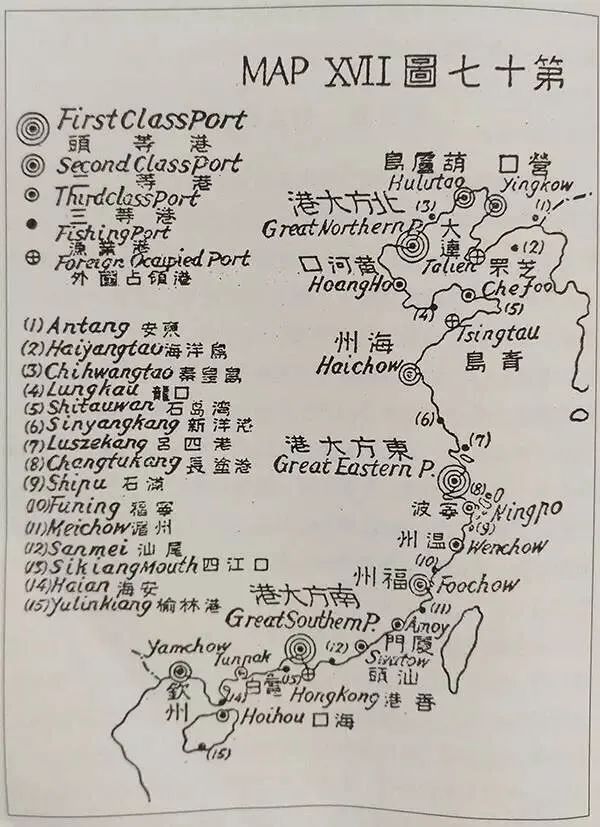 MAP XVII 第十七圖
First Class Port
頭等港
Second Class Port
二等港
Third class Port
三等港
Fishing Port
漁業港
Foreign Ocupied Port
外國占領港
(1) Antang 安東
(2) Haiyangtau 海洋島
(3) Chihwangtao 秦皇島
(4) Lungkau 龍口
(5) Shitauwan 石岛湾
(6) Sinyangkang 新洋港
(7) Luszekang 呂四港
(8) Changtukang 長塗港
(9) Shipu 石浦
(10) Funing 福寧
(11) Meichow 湄州
(12) Sanmei 汕尾
(13) Sikiang Mouth 四江口
(14) Haian 海安
(15) Yulinkiang 榆林港
營口
Yingkow
葫蘆島
Hulutao
(1)
(3)
北方大港
Great Northern P.
大連
Talien
(2)
芝罘
Chefoo
黃河口
HoangHo
(4)
(5)
Tsingtau
青島
海州
Haichow
(6)
(7)
東方大港
Great Eastern P.
(8)
寧波
Ningpo
(9)
温州
Wenchow
(10)
福州
Foochow
(11)
Amoy
廈門
南方大港
Great Southern P.
(12)
Swatow
汕頭
Yamchow
欽州
Tunpak
電白
(13)
Hongkong
香港
(14)
Hoihou
海口
(15)